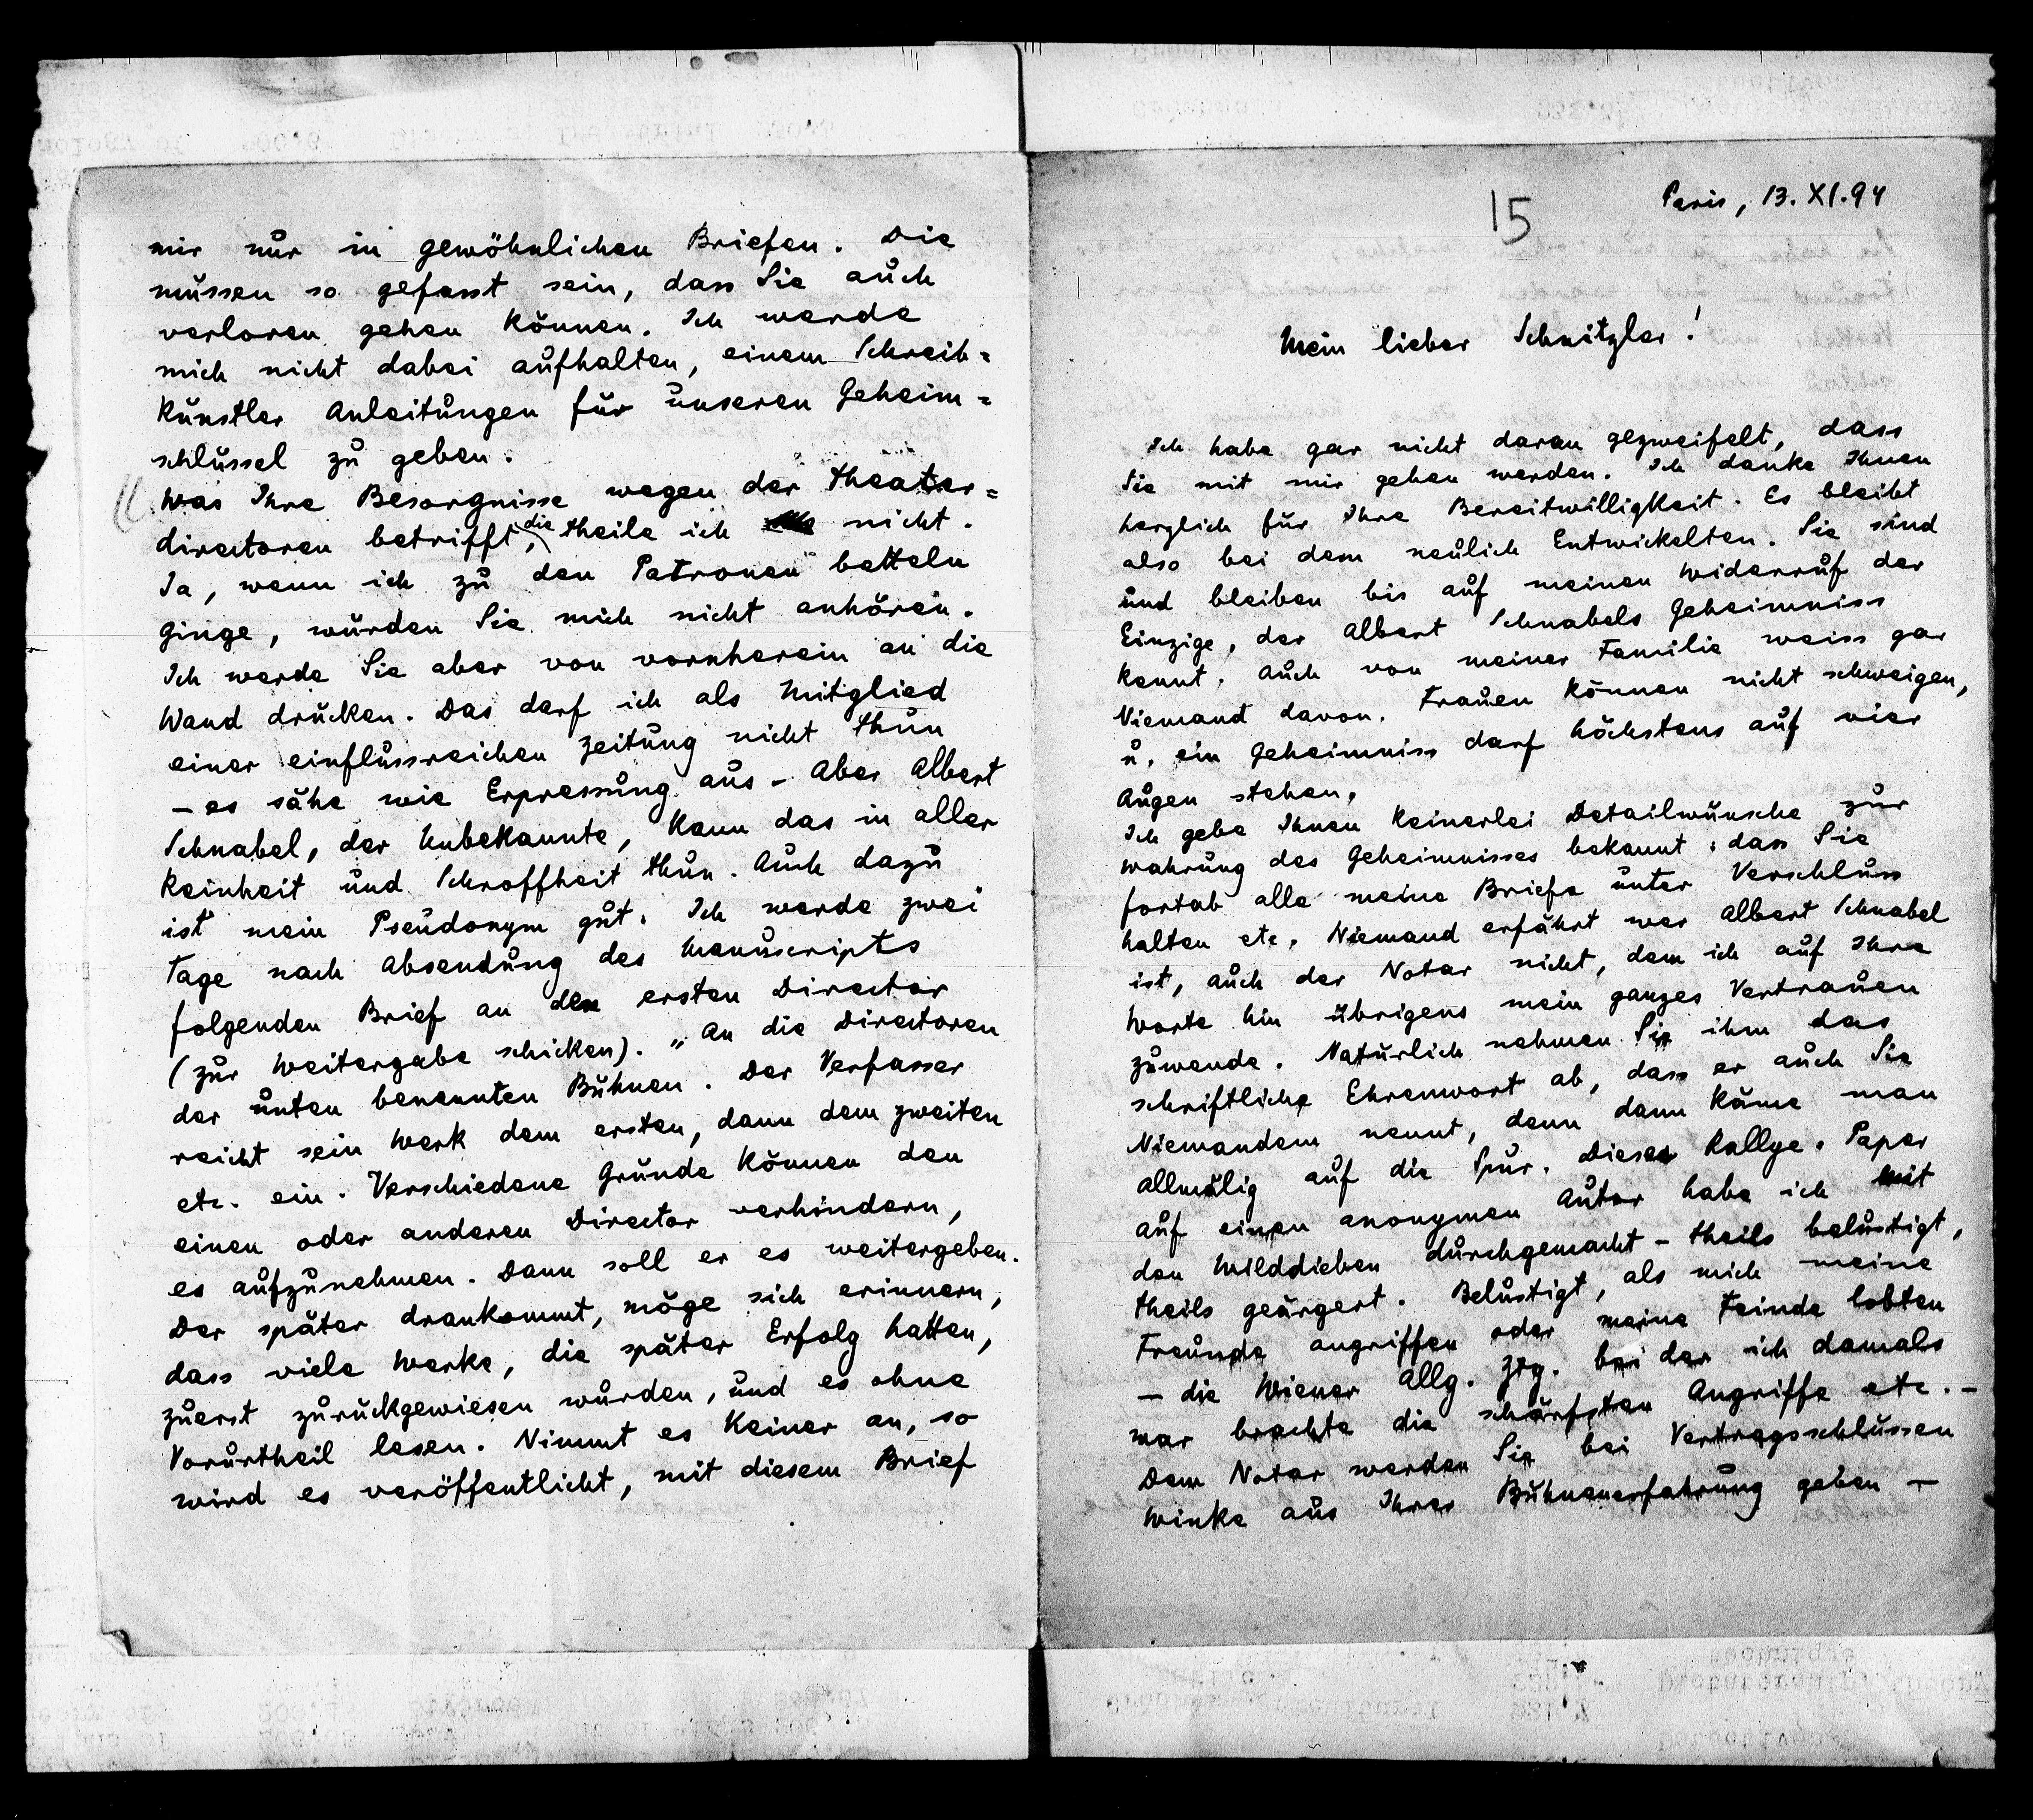 15
Paris, 13. XI. 94
Mein lieber Schnitzler!
Ich habe gar nicht daran gezweifelt, dass
Sie mit mir gehen werden. Ich danke Ihnen
herzlich für Ihre Bereitwilligkeit. Es bleibt
also bei dem neulich Entwickelten. Sie sind
und bleiben bis auf meinen Widerruf der
Einzige, der Albert Schnabels Geheimniss
kennt. Auch von meiner Familie weiss gar
Niemand davon. Frauen können nicht schweigen,
u. ein Geheimniss darf höchstens auf vier
Augen stehen.
Ich gebe Ihnen keinerlei Detailwünsche zur
Wahrung des Geheimnisses bekannt: dass Sie
fortab alle meine Briefe unter Verschluss
halten etc. Niemand erfährt wer Albert Schnabel
ist, auch der Notar nicht, dem ich auf Ihre
Worte hin übrigens mein ganzes Vertrauen
zuwende. Natürlich nehmen Sie ihm das
schriftliche Ehrenwort ab, dass er auch Sie
Niemandem nennt, denn dann käme man
allmälig auf die Spur. Dieses Rallye-Paper
auf einen anonymen Autor habe ich mit
den Wilddieben durchgemacht – theils belustigt,
theils geärgert. Belustigt, als mich meine
Freunde angriffen oder meine Feinde lobten
– die Wiener Allg. Ztg. bei der ich damals
war brachte die schärfsten Angriffe etc. –
Dem Notar werden Sie bei Vertragsschlüssen
Winke aus Ihrer Bühnenerfahrung geben –
mir nur in gewöhnlichen Briefen. Die
müssen so gefasst sein, dass Sie auch
verloren gehen können. Ich werde
mich nicht dabei aufhalten, einem Schreib=
künstler Anleitungen für unseren Geheim=
schlüssel zu geben.
Was Ihre Besorgnisse wegen der Theater=
directoren betrifft, die theile ich nicht.
Ja, wenn ich zu den Patronen betteln
ginge, würden Sie mich nicht anhören.
Ich werde Sie aber von vornherein an die
Wand drücken. Das darf ich als Mitglied
einer einflussreichen Zeitung nicht thun
– es sähe wie Erpressung aus – Aber Albert
Schnabel, der Unbekannte, kann das in aller
Reinheit und Schroffheit thun. Auch dazu
ist mein Pseudonym gut. Ich werde zwei
Tage nach Absendung des Manuscripts
folgenden Brief an den ersten Director
(zur Weitergabe schicken). „An die Directoren
der unten benannten Bühnen. Der Verfasser
reicht sein Werk dem ersten, dann dem zweiten
etc. ein. Verschiedene Gründe können den
einen oder anderen Director verhindern,
es aufzunehmen. Dann soll er es weitergeben.
Der später drankommt, möge sich erinnern,
dass viele Werke, die später Erfolg hatten,
zuerst zurückgewiesen wurden, und es ohne
Vorurtheil lesen. Nimmt es Keiner an, so
wird es veröffentlicht, mit diesem Brief